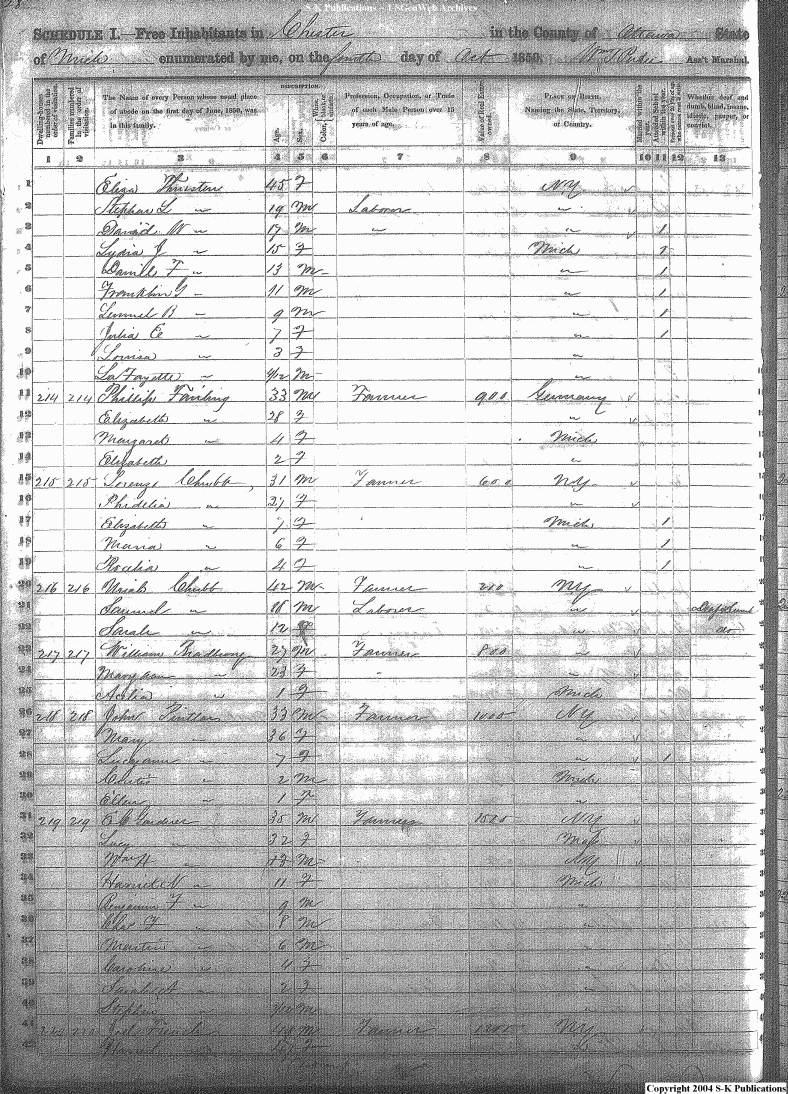 S-K Publications - USGenWeb Archives
SCHEDULE I.—Free Inhabitants in Chester in the County of Ottawa State
of Mich enumerated by me, on the fourth day of Oct 1850. Ass't Marshal.
DESCRIPTION.
Dwelling-houses numbered in the order of visitation.
Families numbered in the order of visitation.
The Name of every Person whose usual place of abode on the first day of June, 1850, was in this family.
Age.
Sex.
Color, White, black, or mulatto.
Profession, Occupation, or Trade of each Male Person over 15 years of age.
Value of Real Estate owned.
PLACE OF BIRTH. Naming the State, Territory, or Country.
Married within the year.
Attended School within the year.
Whether deaf and dumb, blind, insane, idiotic, pauper, or convict.
1 2 3 4 5 6 7 8 9 10 11 12 13
1 Eliza 45 F NY
2 Stephen L " 19 M Laborer "
3 David W " 17 M " " 1
4 Lydia J " 15 F Mich
5 Daniel F " 13 M " 1
6 Franklin G " 11 M " 1
7 Lemuel B " 9 M " 1
8 Julia E " 7 F " 1
9 Louisa " 3 F "
10 LaFayette " M "
11 214 214 Phillip 33 M Farmer 900 Germany
12 Elizabeth " 28 F "
13 Margaret " 4 F Mich
14 Elizabeth 2 F "
15 215 215 Lorenzo Chubb 31 M Farmer 600 NY
16 Phidelia " 27 F "
17 Elizabeth " 7 F Mich 1
18 Maria " 6 F " 1
19 Rocelia " 4 F " 1
20 216 216 Uriah Chubb 42 M Farmer NY
21 Samuel " 18 M Laborer " Deaf & Dumb
22 Sarah " 12 F " do
23 217 217 William 27 M Farmer 800 "
24 Mary Ann " 23 F "
25 " 1 F Mich
26 218 218 John 33 M Farmer 1000 NY
27 Mary " 36 F "
28 Lucyann " 7 F " 1
29 " 2 M Mich
30 Ellen " 1 F "
31 219 219 E C Gardner 35 M Farmer 1500 NY
32 Lucy " 32 F Mass
33 " M NY
34 Harriet N " 11 F Mich
35 Benjamin F " 9 M "
36 Chas F " 8 M "
37 Martin " 6 M "
38 Caroline " 4 F "
39 Sarah A " 2 F "
40 Stephen " M "
41 Joel French M Farmer NY
42 F "
Copyright 2004 S-K Publications